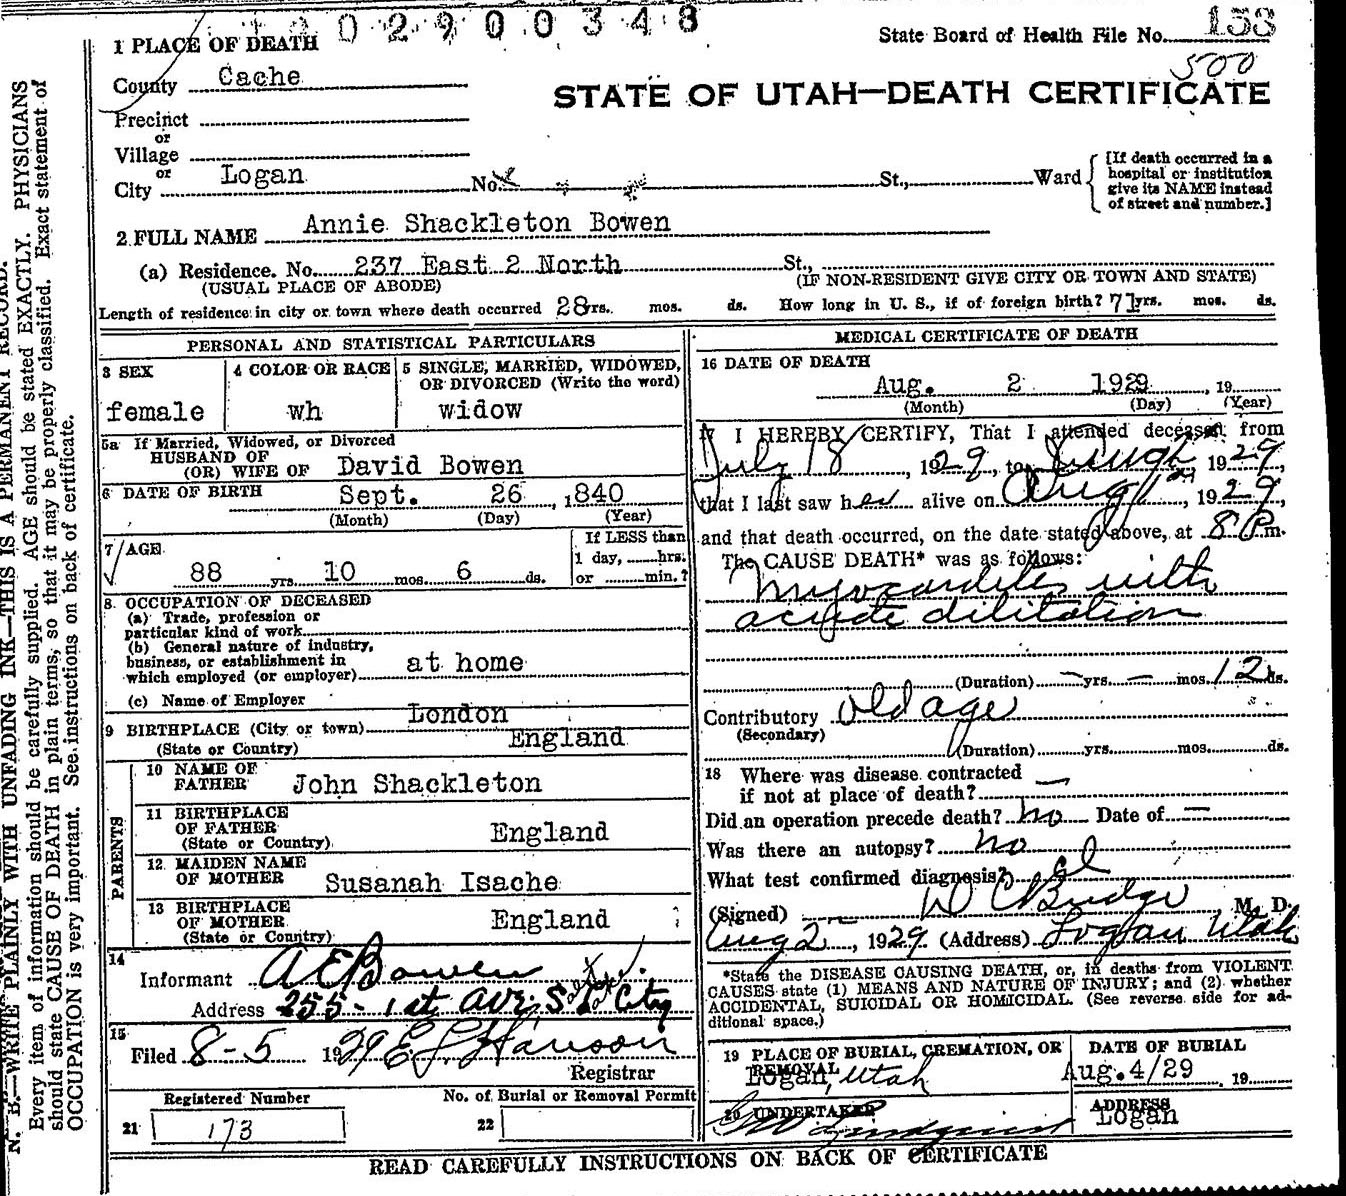 0 2 9 0 0 3 4 8
State Board of Health File No. 153
500
1 PLACE OF DEATH
County Cache
STATE OF UTAH—DEATH CERTIFICATE
Precinct
or
Village
or
City Logan No. St., Ward
[If death occurred in a
hospital or institution
give its NAME instead
of street and number.]
2 FULL NAME Annie Shackleton Bowen
(a) Residence. No. 237 East 2 North St.,
(USUAL PLACE OF ABODE) (IF NON-RESIDENT GIVE CITY OR TOWN AND STATE)
Length of residence in city or town where death occurred 28 yrs. mos. ds. How long in U. S., if of foreign birth? 71 yrs. mos. ds.
PERSONAL AND STATISTICAL PARTICULARS
3 SEX
female
4 COLOR OR RACE
wh
5 SINGLE, MARRIED, WIDOWED,
OR DIVORCED (Write the word)
widow
5a If Married, Widowed, or Divorced
HUSBAND OF
(OR) WIFE OF David Bowen
6 DATE OF BIRTH Sept. 26, 1840
(Month) (Day) (Year)
7 AGE
88 yrs. 10 mos. 6 ds.
If LESS than
1 day, hrs.
or min.?
8. OCCUPATION OF DECEASED
(a) Trade, profession or
particular kind of work
(b) General nature of industry,
business, or establishment in
which employed (or employer) at home
(c) Name of Employer
9 BIRTHPLACE (City or town) London
(State or Country) England
PARENTS
10 NAME OF
FATHER John Shackleton
11 BIRTHPLACE
OF FATHER
(State or Country) England
12 MAIDEN NAME
OF MOTHER Susanah Isache
13 BIRTHPLACE
OF MOTHER England
(State or Country)
14
Informant A E Bowen
Address 255 - 1st Ave, S L City
15
Filed 8-5 1929 Hanson
Registrar
Registered Number
21 173
No. of Burial or Removal Permit
22
MEDICAL CERTIFICATE OF DEATH
16 DATE OF DEATH
Aug. 2 1929, 19
(Month) (Day) (Year)
17 I HEREBY CERTIFY, That I attended deceased from
July 18, 1929, to Aug 2, 1929,
that I last saw her alive on Aug 1st, 1929,
and that death occurred, on the date stated above, at 8 P m.
The CAUSE DEATH* was as follows:
Myocarditis with
acute dilitation
(Duration) — yrs. — mos. 12 ds.
Contributory old age
(Secondary)
(Duration) yrs. mos. ds.
18 Where was disease contracted
if not at place of death? —
Did an operation precede death? no Date of —
Was there an autopsy? no
What test confirmed diagnosis? cl
(Signed) D C Budge M. D.
Aug 2, 1929. (Address) Logan Utah
*State the DISEASE CAUSING DEATH, or, in deaths from VIOLENT
CAUSES state (1) MEANS AND NATURE OF INJURY; and (2) whether
ACCIDENTAL, SUICIDAL OR HOMICIDAL. (See reverse side for ad-
ditional space.)
19 PLACE OF BURIAL, CREMATION, OR
REMOVAL
Logan, Utah
DATE OF BURIAL
Aug. 4/29 19
20 UNDERTAKER
Lindquist
ADDRESS
Logan
READ CAREFULLY INSTRUCTIONS ON BACK OF CERTIFICATE
N. B.—WRITE PLAINLY WITH UNFADING INK—THIS IS A PERMANENT RECORD.
Every item of information should be carefully supplied. AGE should be stated EXACTLY. PHYSICIANS
should state CAUSE OF DEATH in plain terms, so that it may be properly classified. Exact statement of
OCCUPATION is very important. See instructions on back of certificate.